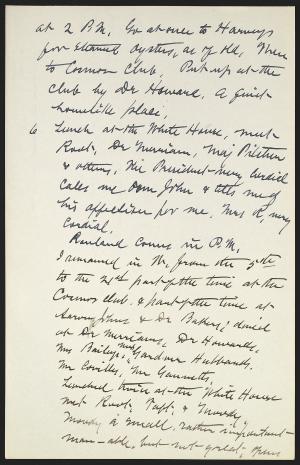 at 2 P.M. Go at once to Harveys
for steamed oysters, as of old. Then
to Cosmos Club. Put up at the
club by Dr Howard. A quiet
homelike place.
6 Lunch at the White House, meet
Root, Dr Merriam, Maj Pitcher
& others. The President very cordial
calls me Oom John & tells me of
his affection for me. Mrs R. very
cordial.
Rowland comes in P.M.
I remained in W. from the 5th
to the 21st part of the time at the
Cosmos club & part of the time at
Aaron Johns & Dr Bakers; dined
at Dr Merriams, Dr Howards,
Mrs Baileys, Mr Gardner Hubbards,
Mr Covilles, Mr Gannetts,
Lunched twice at the White House
met Root, Taft, &
Moody is small, rather insignificant
man - able, but not great;